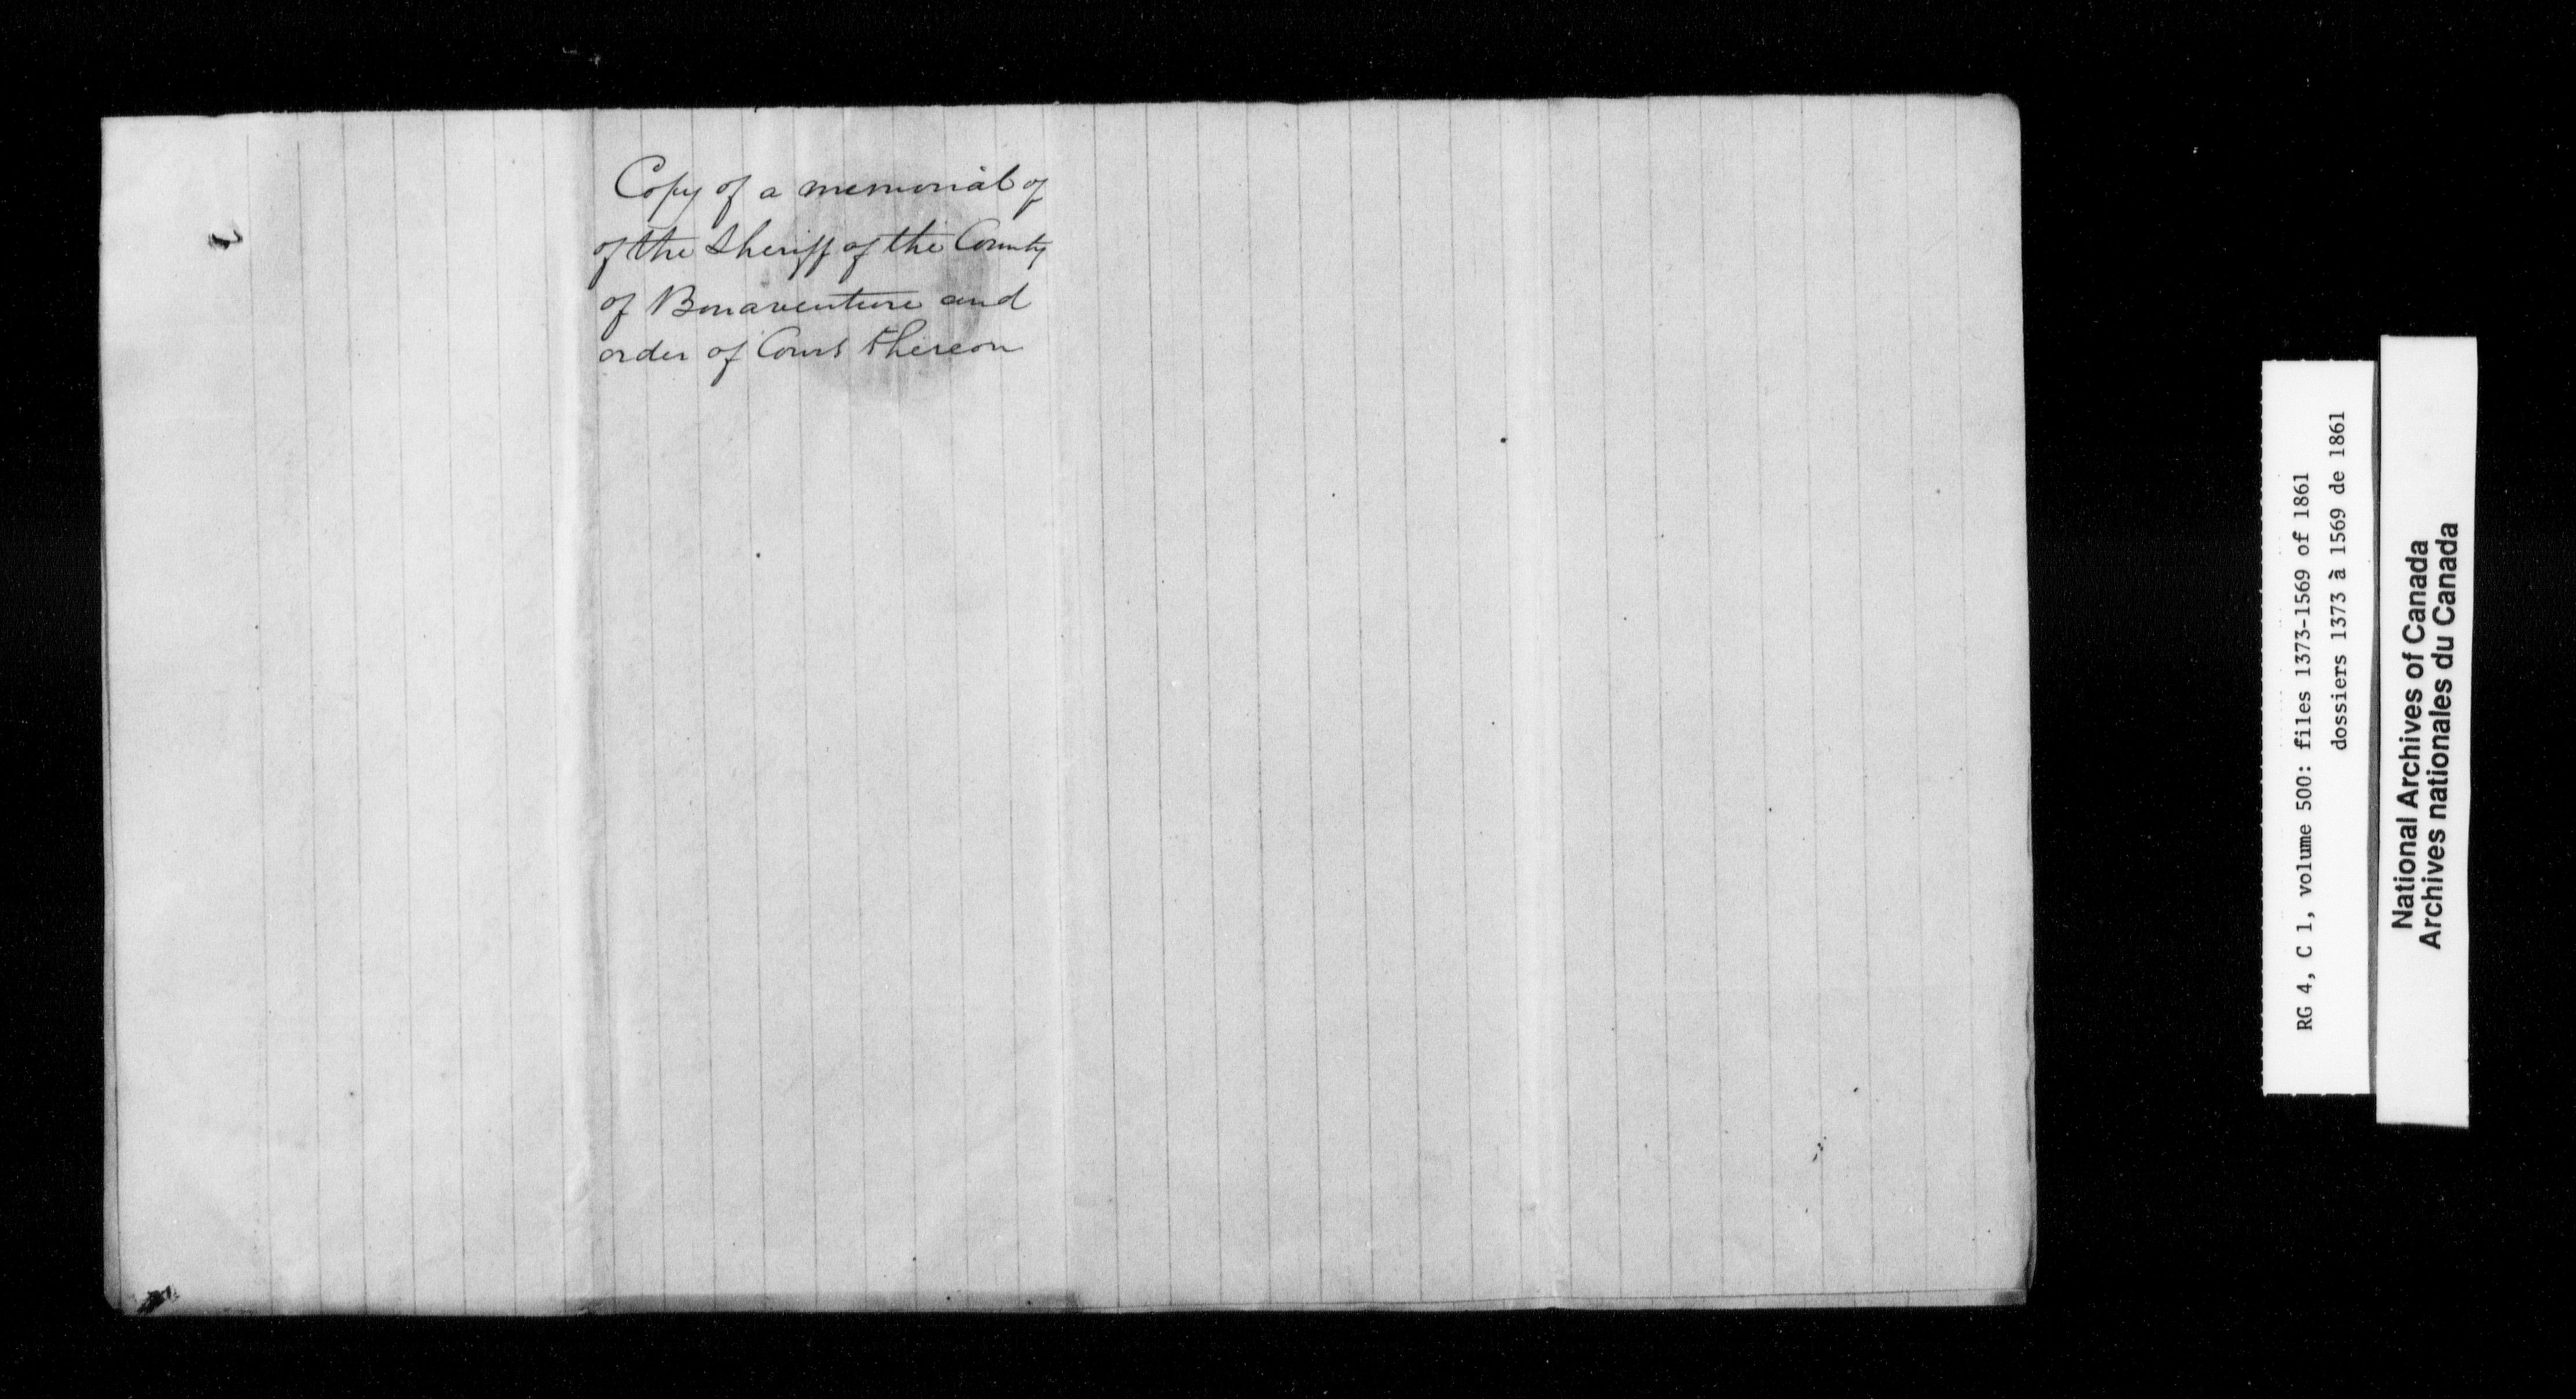 Copy of a memorial of
of the Sheriff of the County
of Bonaventure and
order of Court thereon
RG 4, C 1, volume 500: files 1373-1569 of 1861
dossiers 1373 à 1569 de 1861
National Archives of Canada
Archives nationales du Canada